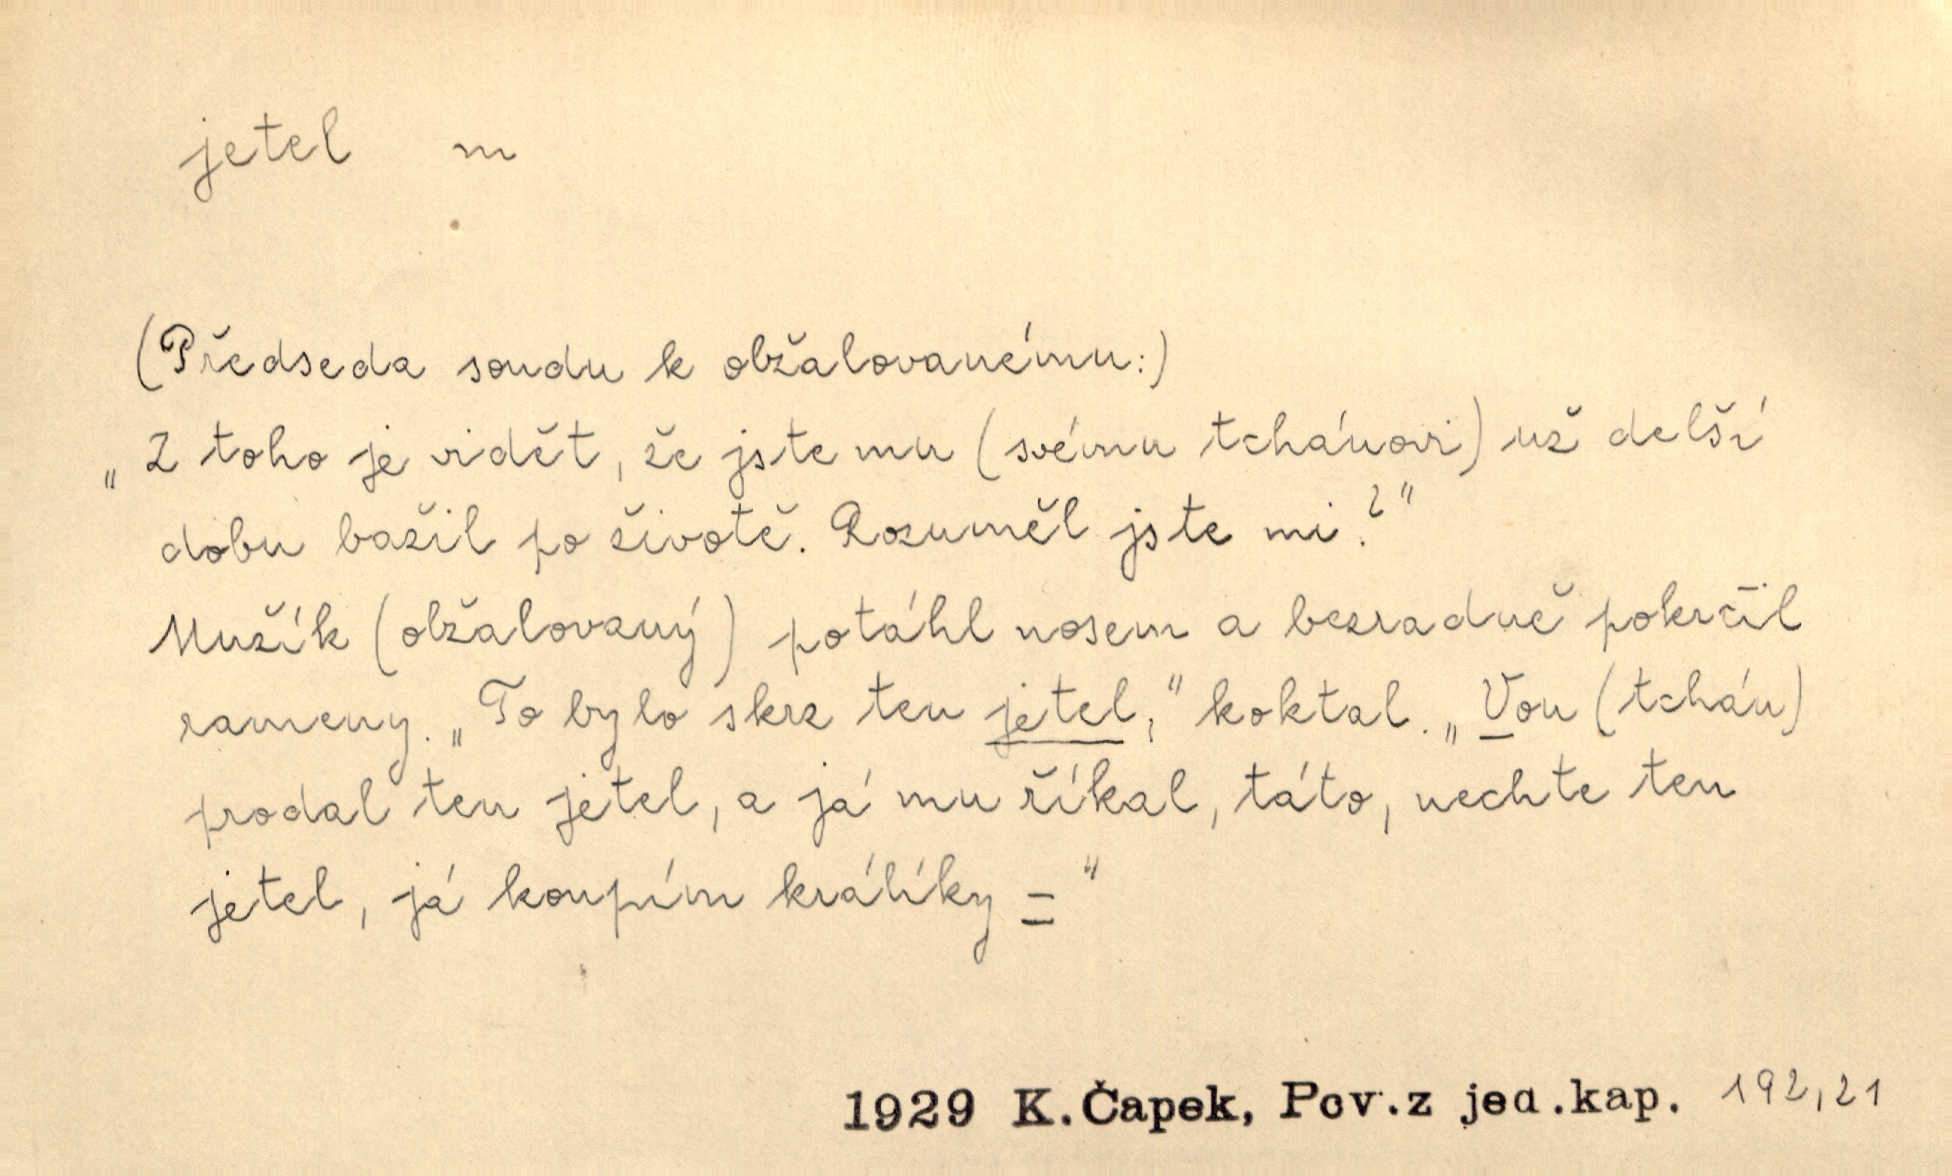 jetel m
(Předseda soudu k obžalovanému:)
„Z toho je vidět, že jste mu (svému tchánovi) už delší
dobu bažil po životě. Rozuměl jste mi?"
Mužík (obžalovaný) potáhl nosem a bezradně pokrčil
rameny. „To bylo skrz ten jetel," koktal. „Von (tchán)
prodal ten jetel, a já mu říkal, táto, nechte ten
jetel, já koupím králíky –"
1929 K.Čapek, Pov.z jed.kap. 192,21